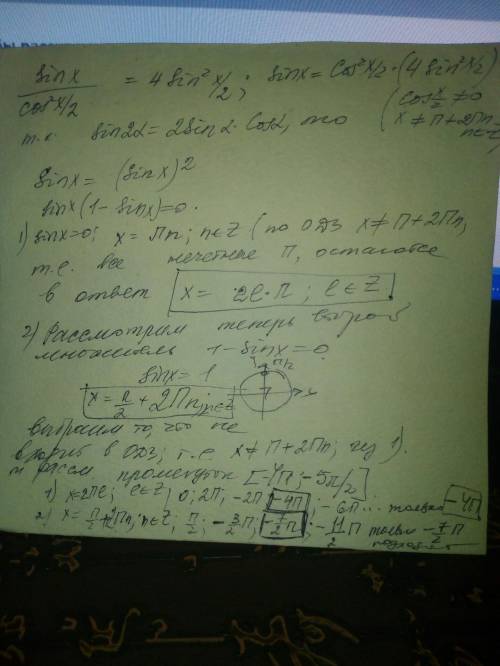 sinx / cos²x/2 = 4 sin² x/2; sinx = cos²x/2 · (4 sin²x/2)
(cos x/2 ≠ 0
x ≠ П + 2Пn
n∈Z)
т.к. sin2α = 2sinα·cosα, то
sinx = (sinx)²
sinx(1 - sinx) = 0.
1) sinx=0; x = Пn; n∈Z (по ОДЗ x≠П+2Пn,
т.е. все нечетные П, остаются
в ответ x = 2l·П; l∈Z
2) Рассмотрим теперь второй
множитель 1 - sinx = 0
П/2
sinx = 1
x
x = П/2 + 2Пn; n∈Z
выбраим то, что не
в ОДЗ; т.е x≠П+2Пn; из 1).
и рассм промежуток [-4П; -5П/2]
1) x=2Пl; l∈Z, 0; 2П; -2П; -4П; -6П... только -4П
2) x = П/2 + 2Пn; n∈Z; П/2; -3/2П; -7/2П; -11/2П только -7/2П
подходит